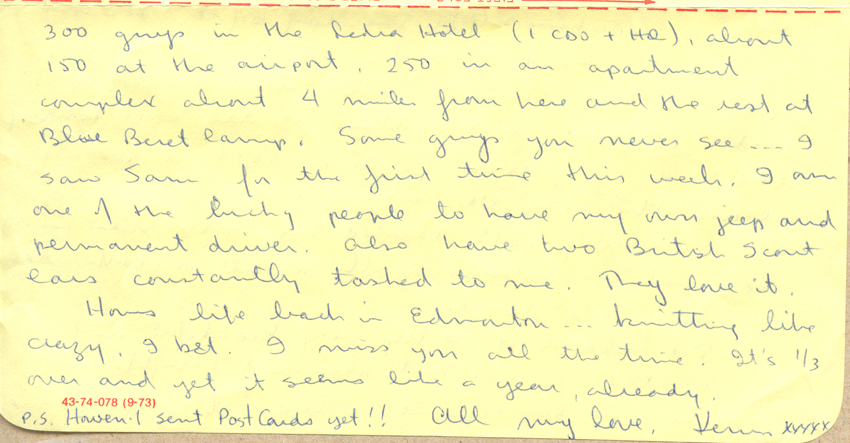 300 guys in the Ledra Hotel (1 CDO + HQ), about
150 at the airport, 250 in an apartment
complex about 4 miles from here and the rest at
Blue Beret Camp. Some guys you never see... I
saw Sam for the first time this week. I am
one of the lucky people to have my own jeep and
permanent driver. Also have two British Scout
cars constantly tasked to me. They love it.
Hows life back in Edmonton... knitting like
crazy, I bet. I miss you all the time. It's 1/3
over and yet it seems like a year, already.
43-74-078 (9-73)
P.S. Haven't sent Post Cards yet!! All my love, xxxxx